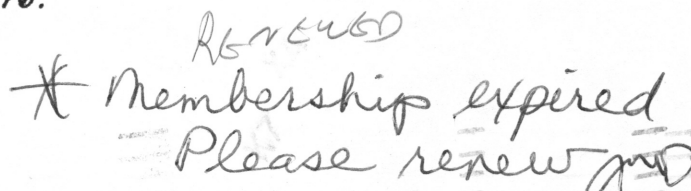 RENEWED
* Membership expired
Please renew